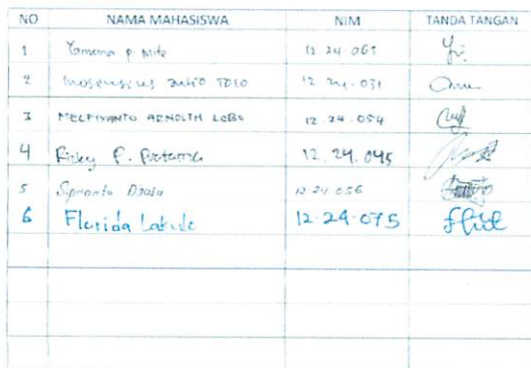 NO NAMA MAHASISWA NIM TANDA TANGAN
1 P. Mite 12.24.061
2 Inosensius Julio TOLO 12.24.031
3 MELFIYANTO ARNOLTH LOBO 12.24.054
4 Rizky P. Pratama 12.24.045
5 12.24.056
6 Florida Lakule 12.24.075